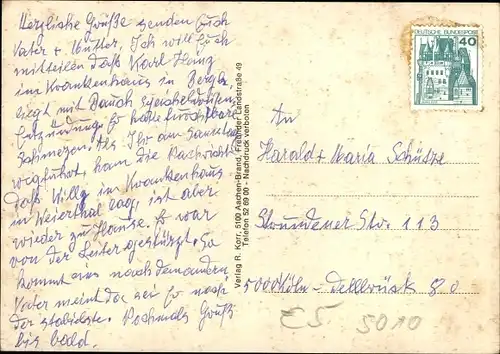 Herzliche Grüße senden Euch
Vater + Mutter. Ich will Euch
mitteilen daß Karl Heinz
im Krankenhaus in
liegt mit Bauchspeicheldrüsen-
Entzündung. Er hatte furchtbare
Schmerzen. Als Ihr am Samstag
wegfuhrt, kam die Nachricht
daß Willy im Krankenhaus
in Weiertal lag, ist aber
wieder zu Hause. Er war
von der Leiter gestürzt. So
kommt eins nach dem andern
Vater meint das sei so nach
der Nochmals Gruß
bis bald.
Verlag R. Korr, 5100 Aachen-Brand, Freunder Landstraße 49
Telefon 52 89 00 - Nachdruck verboten
DEUTSCHE BUNDESPOST
40
An
Harald + Maria Schütze
Str. 113
5000 Köln - Dellbrück 80
ES 5010